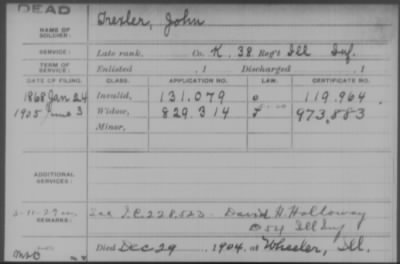 DEAD
NAME OF SOLDIER: Trexler, John
SERVICE: Late rank, Co. K, 38 Reg't Ill Inf.
TERM OF SERVICE: Enlisted , 1 Discharged , 1
DATE OF FILING. CLASS. APPLICATION NO. LAW. CERTIFICATE NO.
1868 Jan 24 Invalid, 131.079 119.964
1905 June 3 Widow, 829.314 973,883
Minor,
ADDITIONAL SERVICES:
REMARKS: David H. Holloway
54 Ill Inf
Died Dec 29 1904, at Wheeler, Ill.